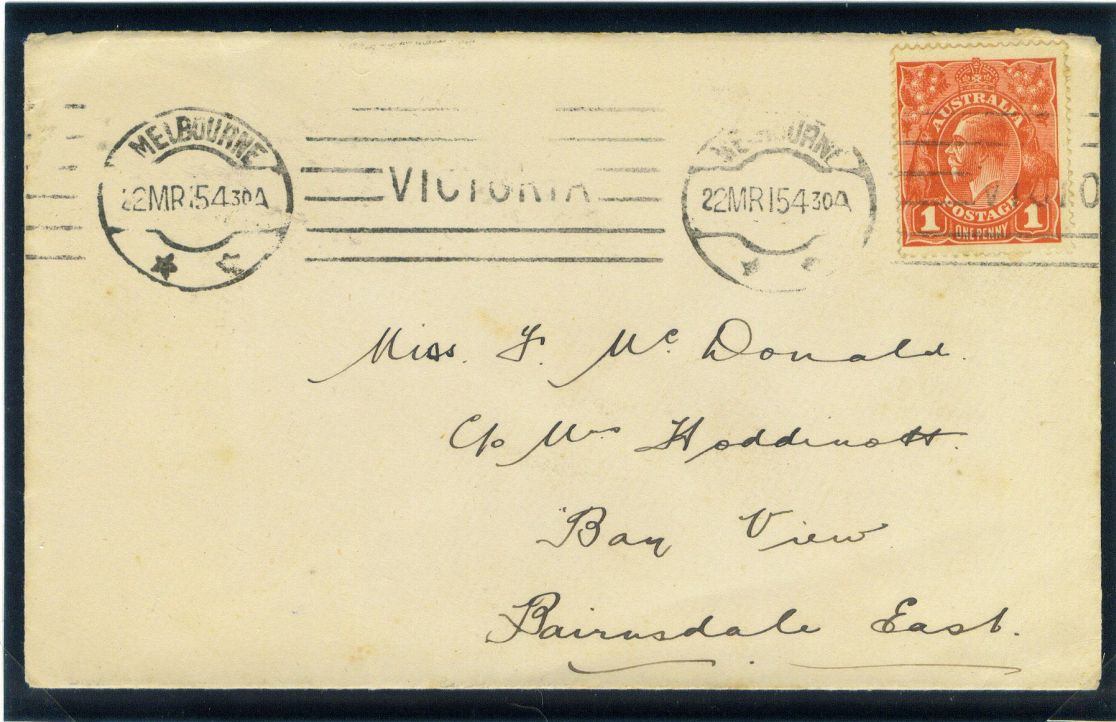 MELBOURNE
22MR15430A
VICTORIA
MELBOURNE
22MR15430A
AUSTRALIA
POSTAGE
1 ONE PENNY 1
VICTO
Miss. F. Mc. Donald.
C/o Mrs Hoddinott.
Bay View
Bairnsdale East.